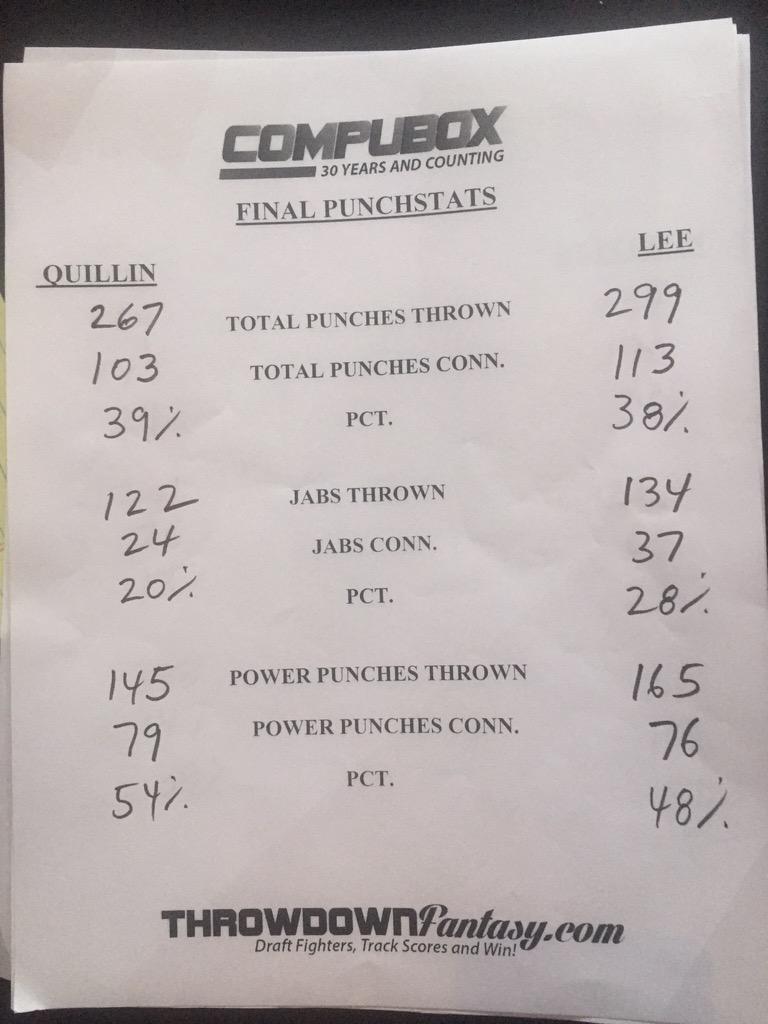 COMPUBOX
30 YEARS AND COUNTING
FINAL PUNCHSTATS
QUILLIN LEE
267 TOTAL PUNCHES THROWN 299
103 TOTAL PUNCHES CONN. 113
39% PCT. 38%
122 JABS THROWN 134
24 JABS CONN. 37
20% PCT. 28%
145 POWER PUNCHES THROWN 165
79 POWER PUNCHES CONN. 76
54% PCT. 48%
THROWDOWNFantasy.com
Draft Fighters, Track Scores and Win!